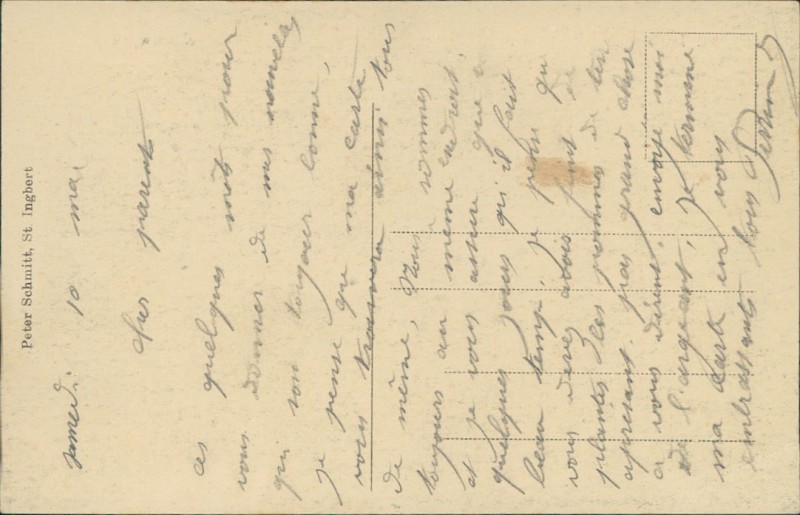 Peter Schmitt, St Ingbert
samedi 10 mai
cher parent
ces quelques mots pour
vous donner de mes nouvelles
qui son toujour bonne,
je pense que ma carte
vous trouvera ainsi tous
de même, Nous sommes
toujours au même endroit,
et je vous assure que
quelques jours qu'il fait
beau temp, je pense que
vous devez avois finit de
plantes les pommes de ter
apresant pas grand chose
a vous dirent, envoye moi
de l'argeant, je termine
ma carte en vous
embrassant tous